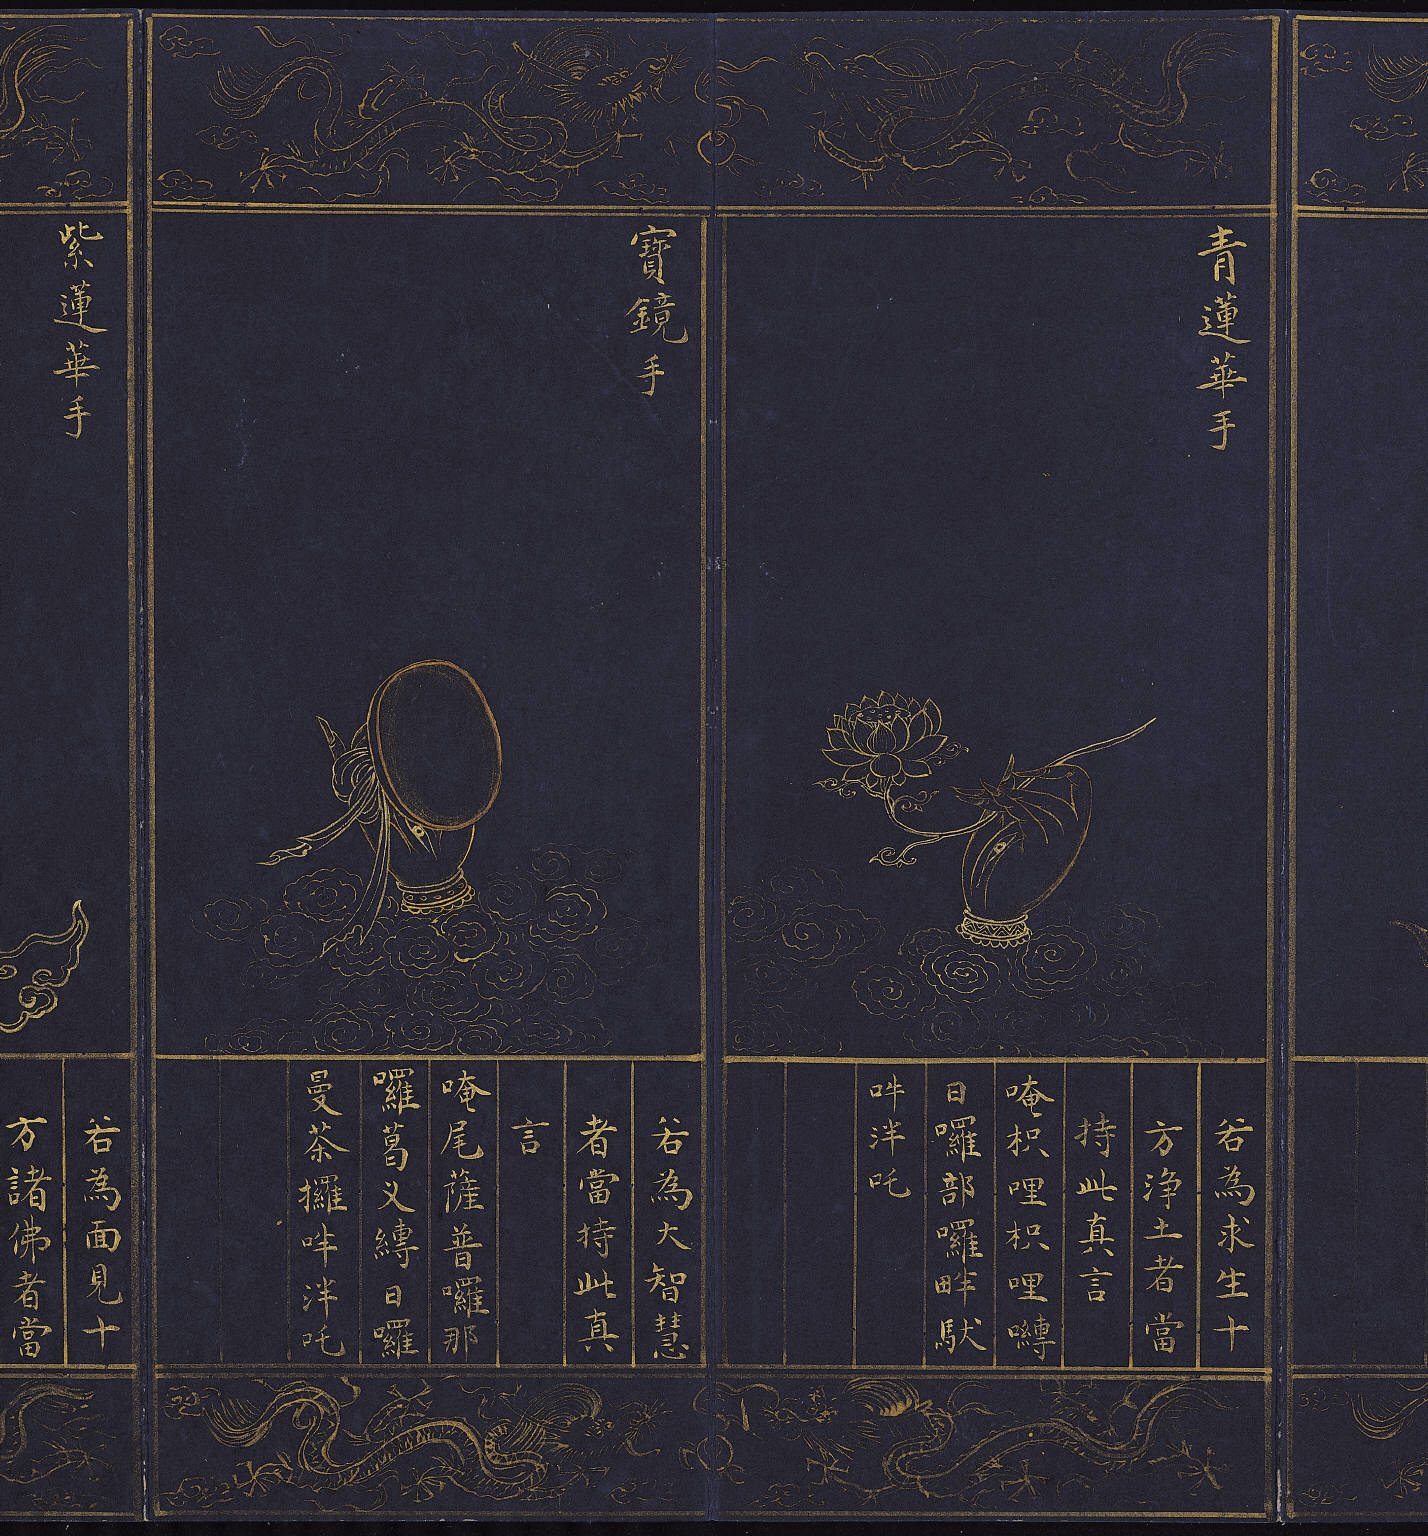 青蓮華手
若為求生十
方淨土者當
持此真言
唵枳哩枳哩嚩
日囉部囉畔馱
吽泮吒
寶鏡手
若為大智慧
者當持此真
言
唵尾薩普囉那
囉葛义嚩日囉
曼荼攞吽泮吒
紫蓮華手
若為面見十
方諸佛者當